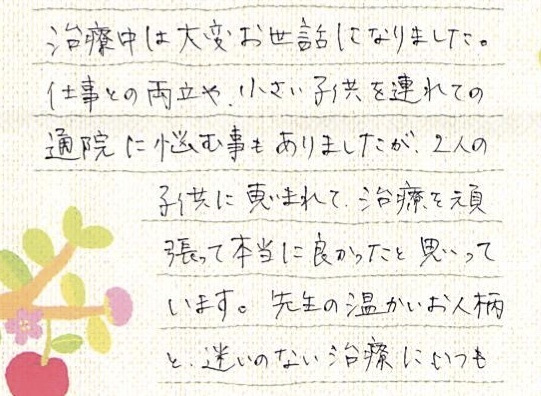 治療中は大変お世話になりました。
仕事との両立や、小さい子供を連れての
通院に悩む事もありましたが、2人の
子供に恵まれて、治療を頑
張って本当に良かったと思いって
います。先生の温かいお人柄
と、迷いのない治療にいつも